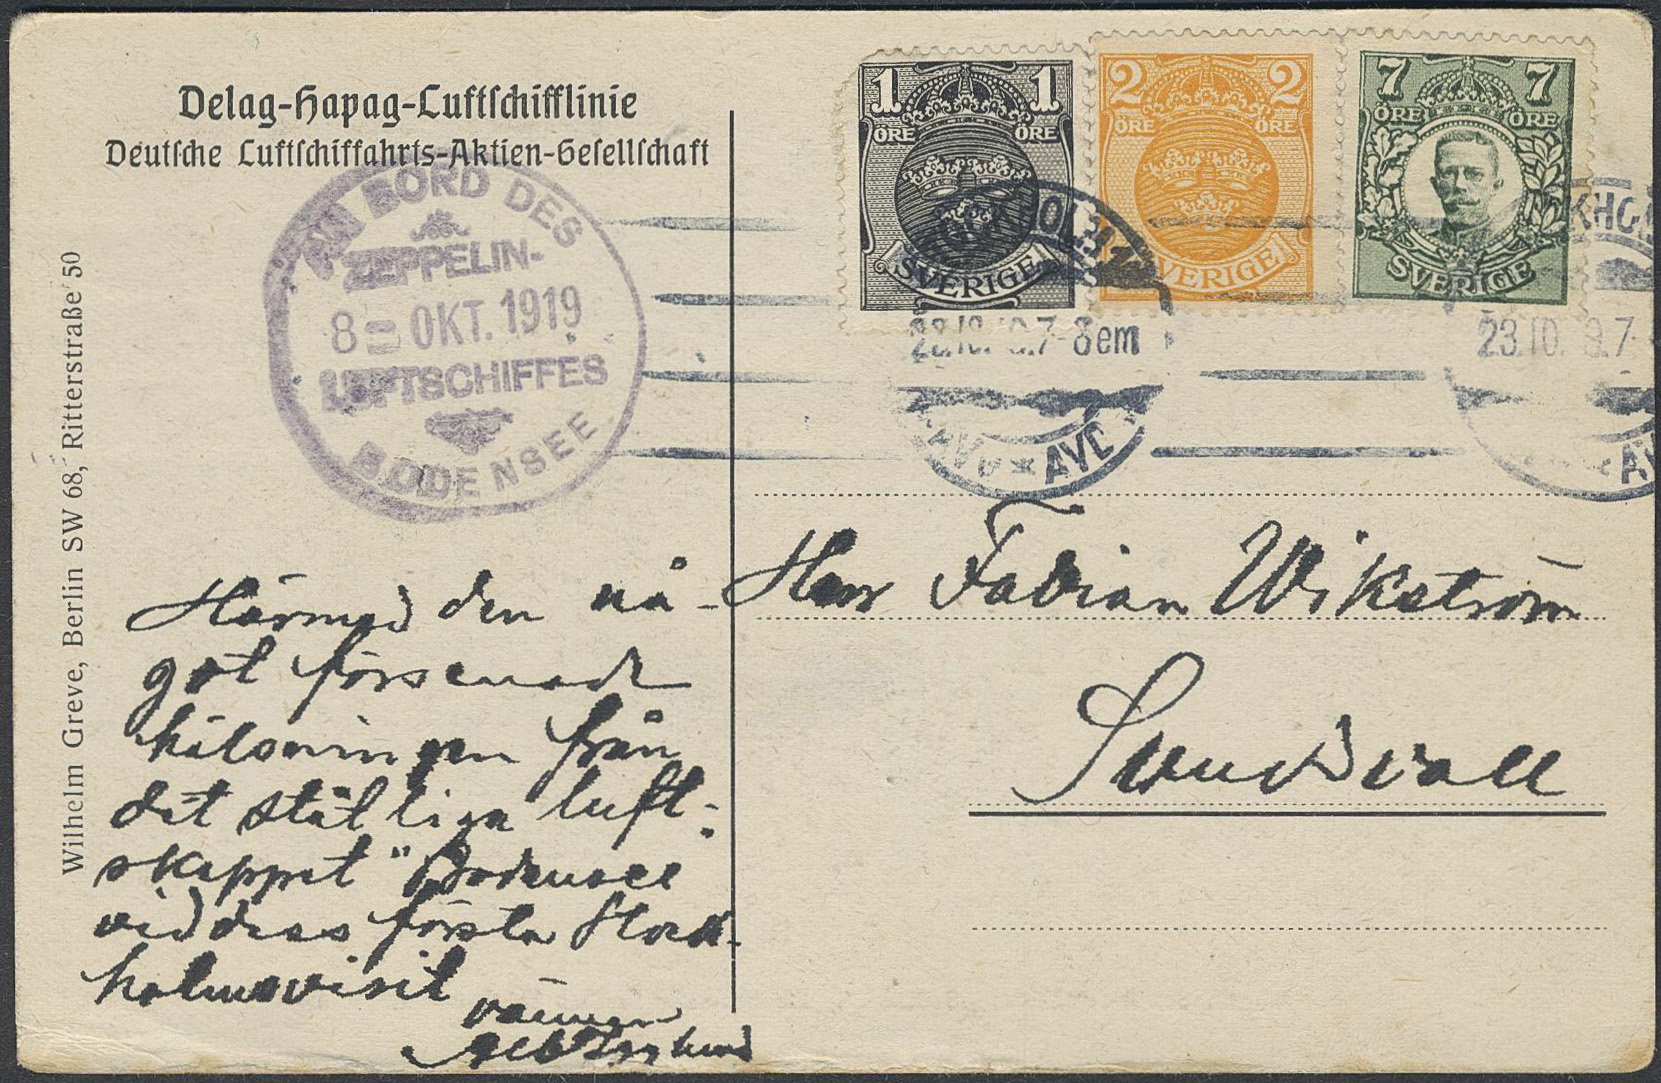 Delag-Hapag-Luftschifflinie
Deutsche Luftschiffahrts-Aktien-Gesellschaft
AN BORD DES
ZEPPELIN-
8 OKT. 1919
LUFTSCHIFFES
BODENSEE
1 1
ÖRE ÖRE
SVERIGE
2 2
ÖRE ÖRE
SVERIGE
7 7
ÖRE ÖRE
SVERIGE
7-8em
AVG
23.10.
Wilhelm Greve, Berlin SW 68, Ritterstraße 50
Härmed den nå-
got försenade
hälsningen från
det ståtliga luft-
skeppet "Bodensee
vid dess första Stock-
holmsvisit
vännen
Herr Fabian Wikström
Sundsvall